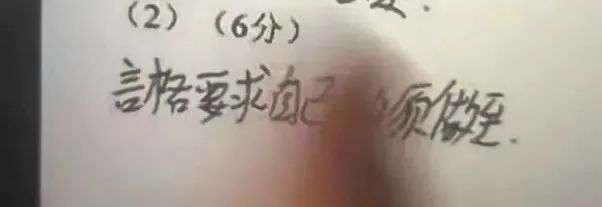 （2）（6分）
言格要求自己 须做至.